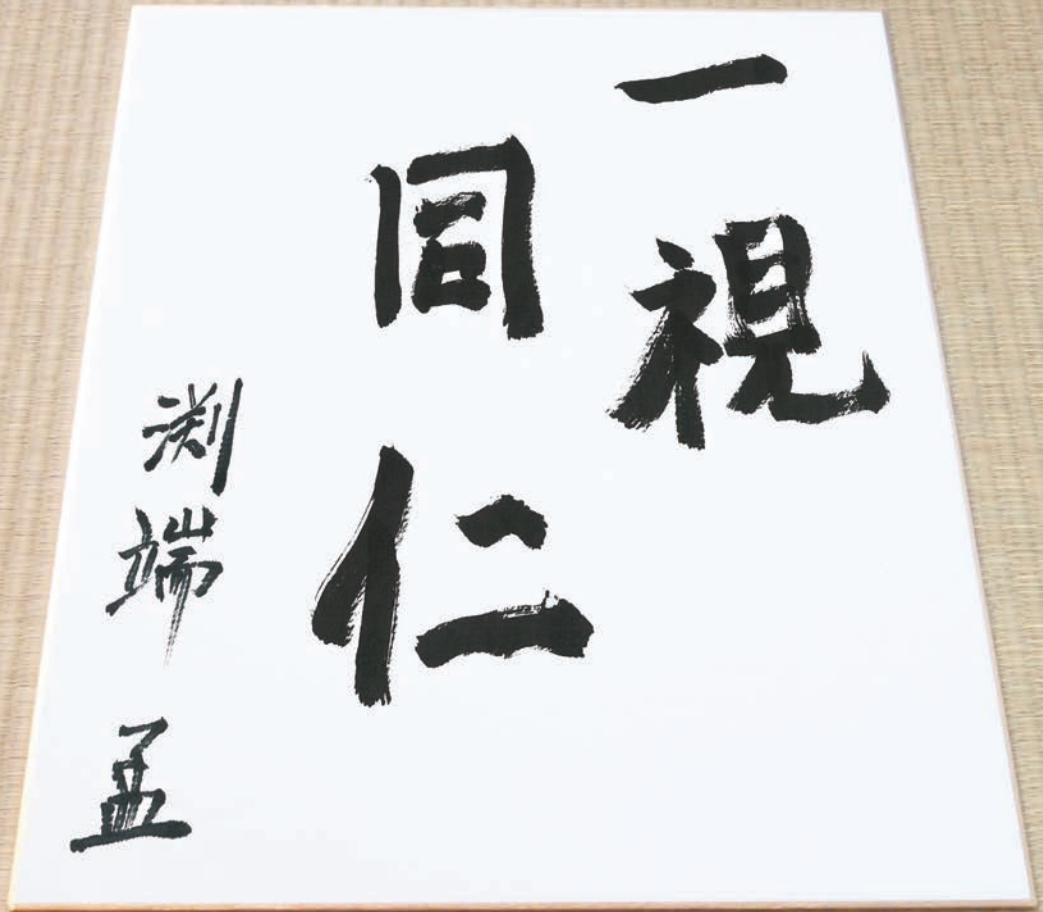 一視
同仁
渕端孟